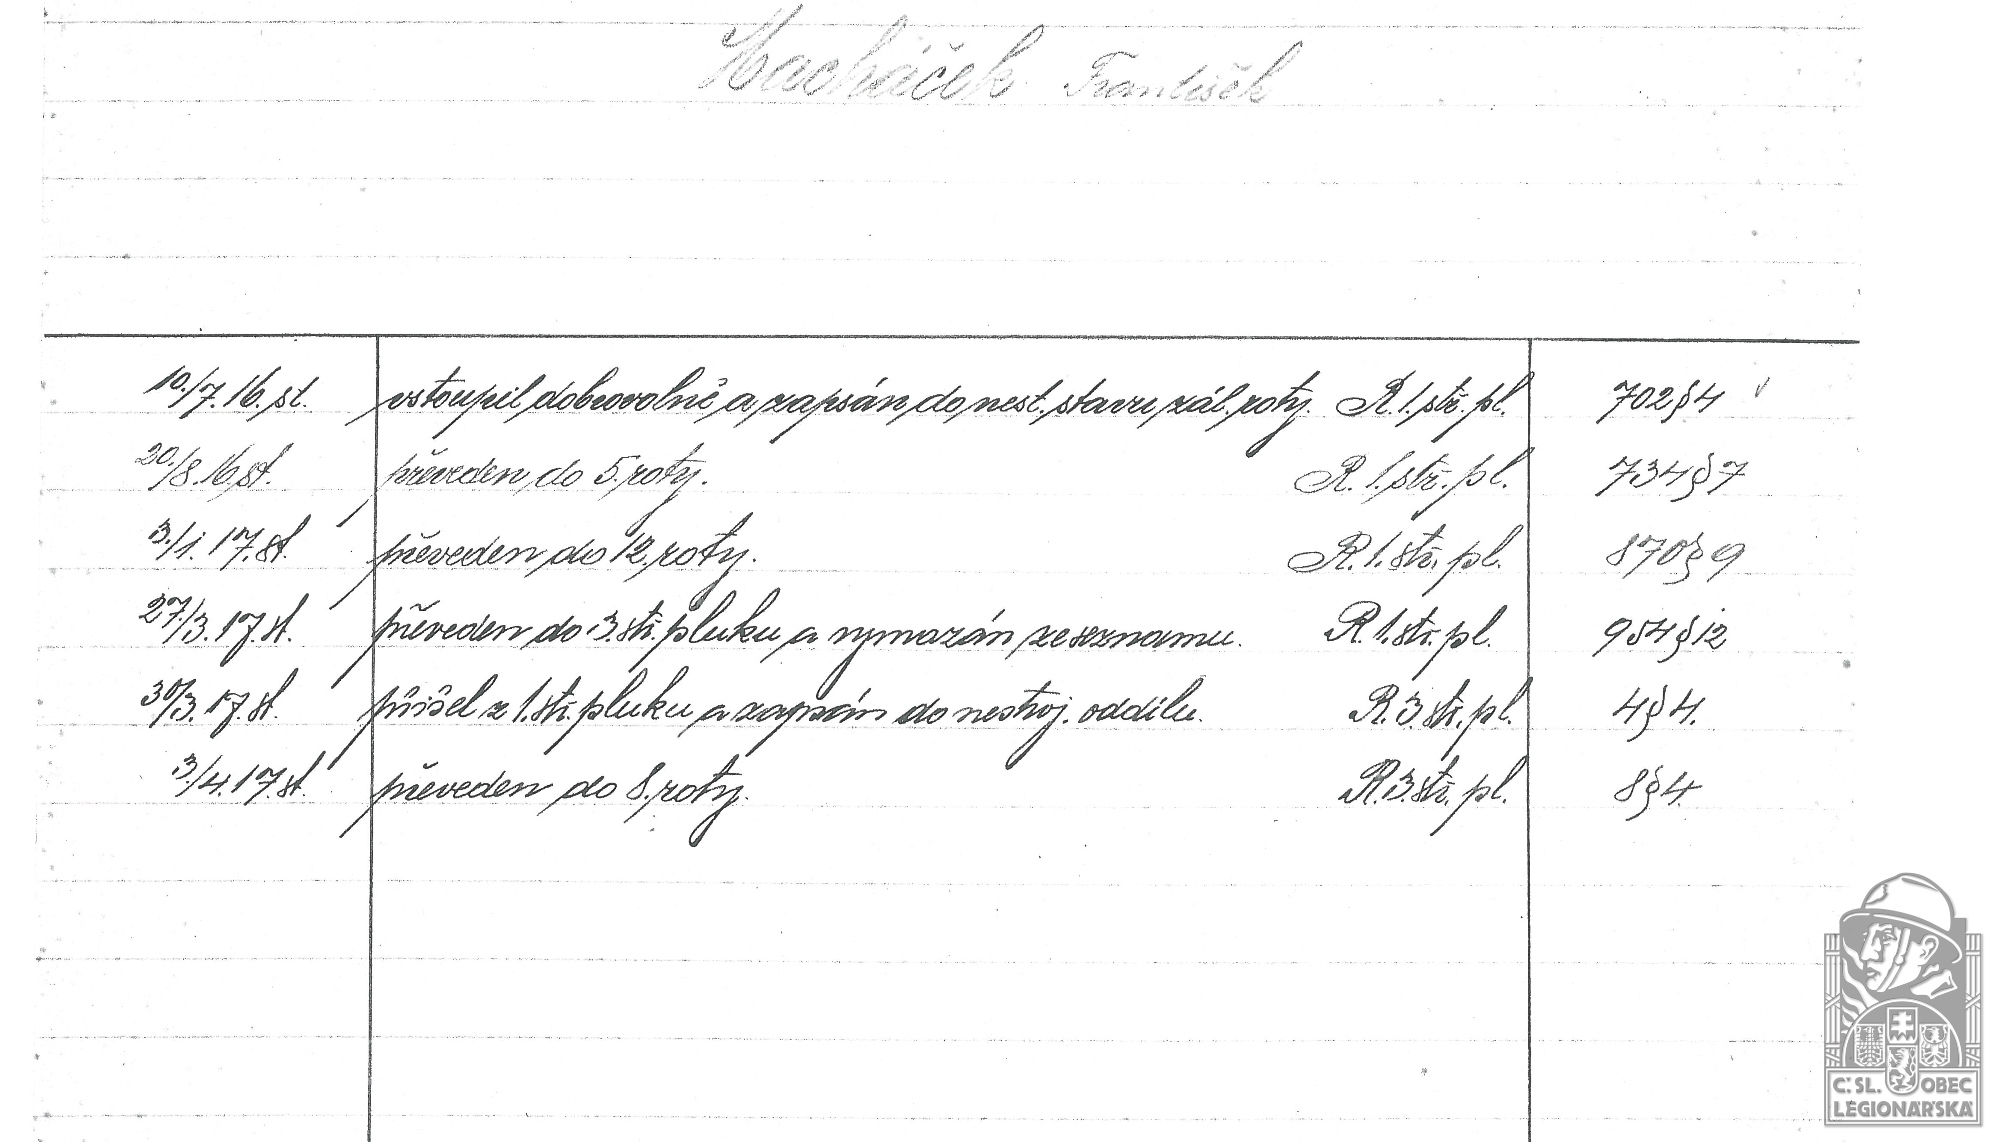 Macháček František
10./7. 16. st. vstoupil dobrovolně a zapsán do nest. stavu zál. roty. R. 1. stř. pl. 702 § 4
20./8. 16. st. převeden do 5. roty. R. 1. stř. pl. 734 § 7
3./1. 17. st. převeden do 12. roty. R. 1. stř. pl. 870 § 9
27./3. 17. st. převeden do 3. stř. pluku a vymazán ze seznamu. R. 1. stř. pl. 954 § 12
30/3. 17. st. přišel z 1. stř. pluku a zapsán do nestroj. oddílu. R. 3. stř. pl. 4 § 4.
3./4. 17. st. převeden do 8. roty. R. 3. stř. pl. 8 § 4.
Č. SL. OBEC
LEGIONÁŘSKÁ